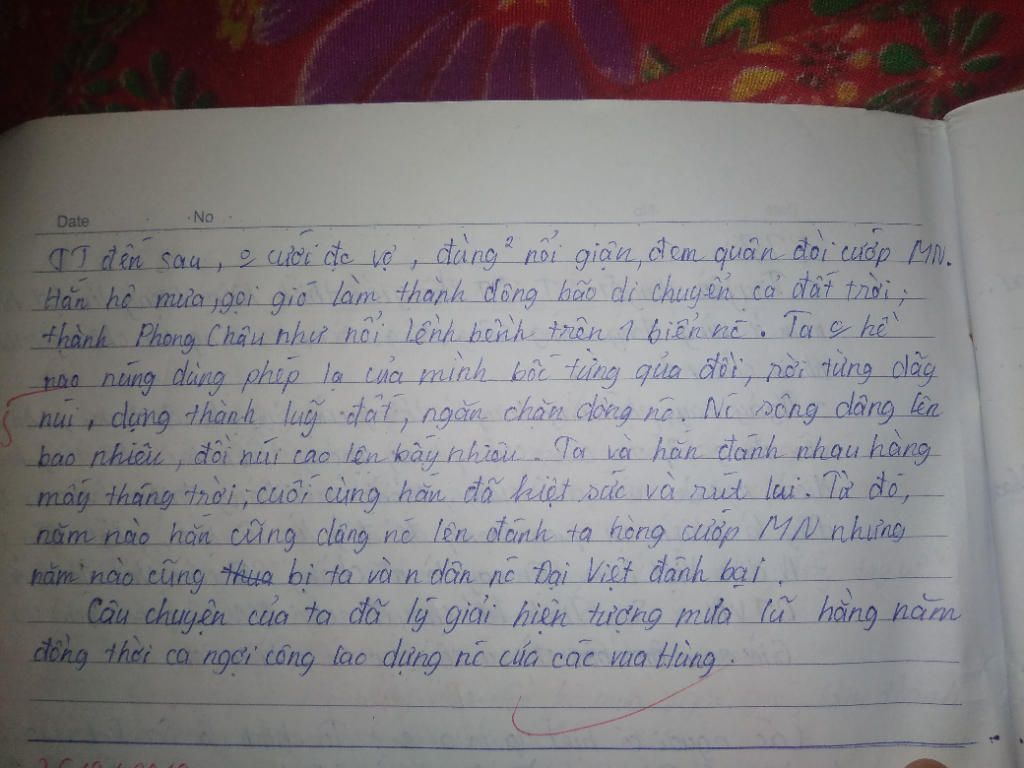 Date No
TT đến sau, o cưới đc vợ, đùng² nổi giận, đem quân đòi cướp MN.
Hắn hô mưa, gọi gió làm thành dông bão di chuyển cả đất trời;
thành Phong Châu như nổi lềnh bềnh trên 1 biển nc. Ta o hề
nao núng dùng phép lạ của mình bốc từng qủa đồi, rời từng dãy
núi, dựng thành luỹ đất, ngăn chặn dòng nc. Nc sông dâng lên
bao nhiêu, đồi núi cao lên bấy nhiêu. Ta và hắn đánh nhau hàng
mấy tháng trời; cuối cùng hắn đã kiệt sức và rút lui. Từ đó,
năm nào hắn cũng dâng nc lên đánh ta hòng cướp MN nhưng
năm nào cũng thua bị ta và n dân nc Đại Việt đánh bại.
Câu chuyện của ta đã lý giải hiện tượng mưa lũ hằng năm
đồng thời ca ngợi công lao dựng nc của các vua Hùng.